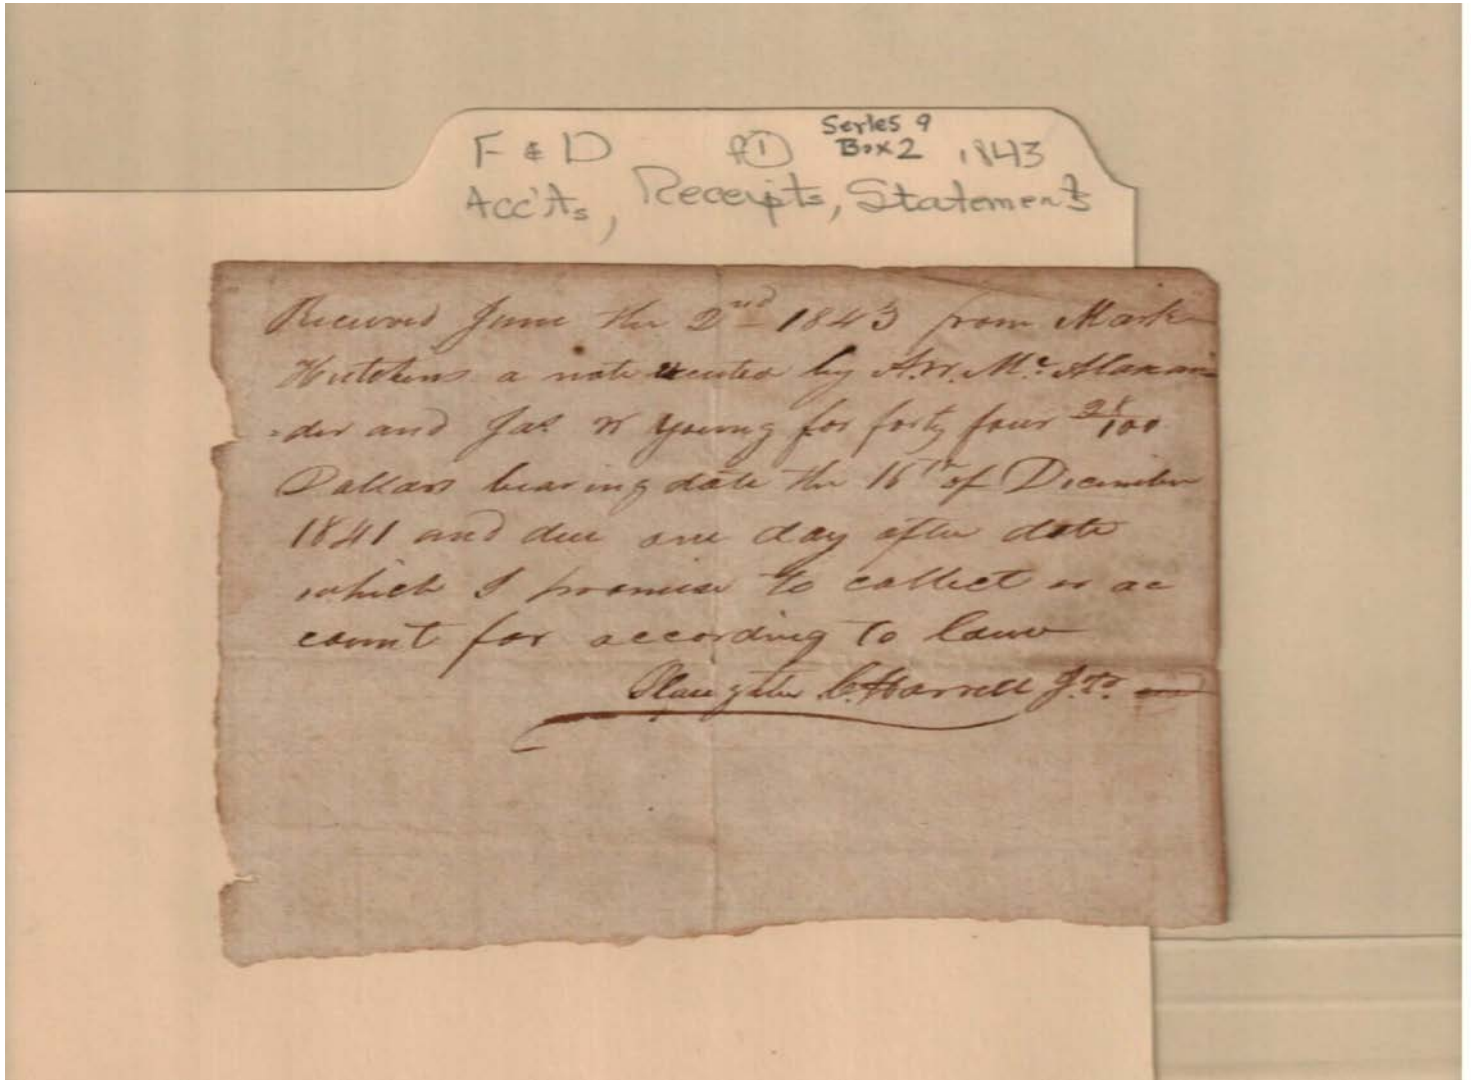 F & D f① Series 9
Box 2 1843
Acc'ts, Receipts, Statements
Received June the 2nd 1843 from Mark
Hutchens a note executed by A.W. Mc Alaxan
=der and Jas W Young for forty four /100
Dollars bearing date the 16th of December
1841 and due one day after date
which I promise to collect or ac
count for according to law
Slaughter C. Harrell J.P.